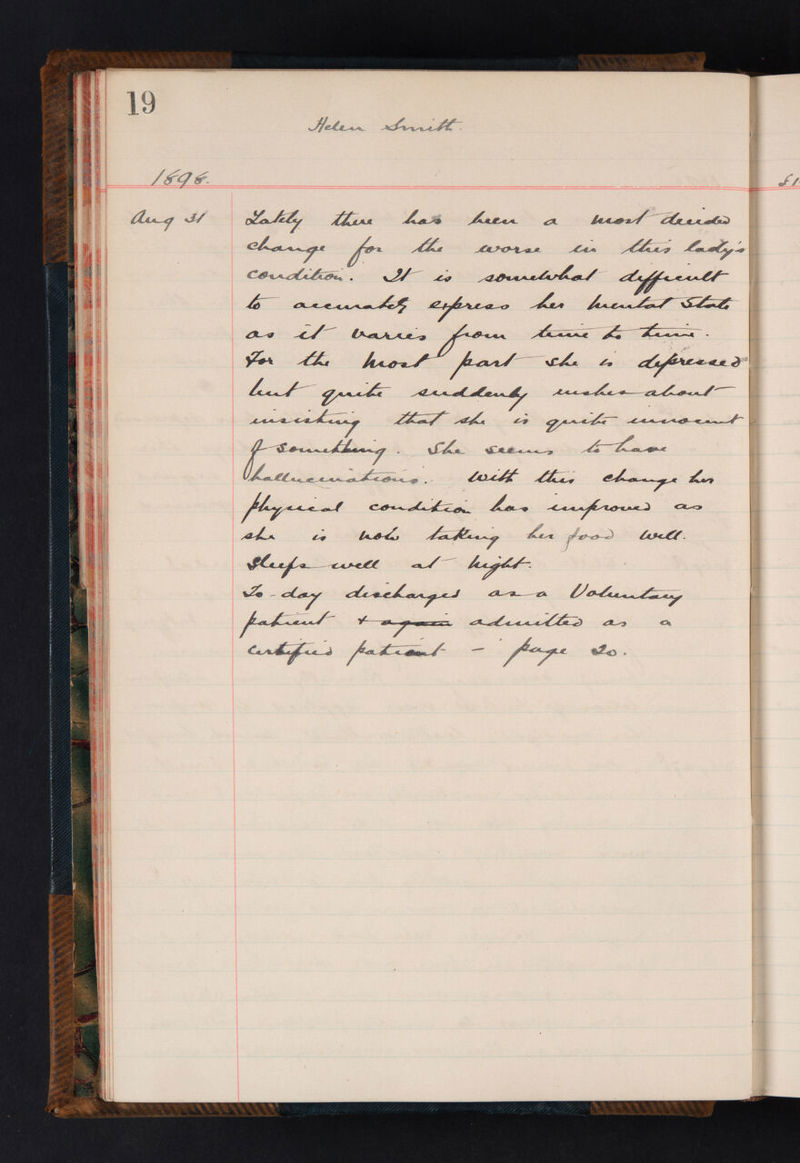 19
Helen Smith.
1898.
Aug 31 Lately there has been a most decided
change for the worse in this lady's
condition. It is somewhat difficult
to accurately express her mental State
as it varies from time to time.
For the most part she is depressed
but quite suddenly rushes about
insisting that she is quite innocent
of something. She seems to have
hallucinations. With this change her
physical condition has improved as
she is now taking her food well.
Sleeps well at night.
To-day discharged as a Voluntary
patient + again admitted as a
certified patient - page 20.